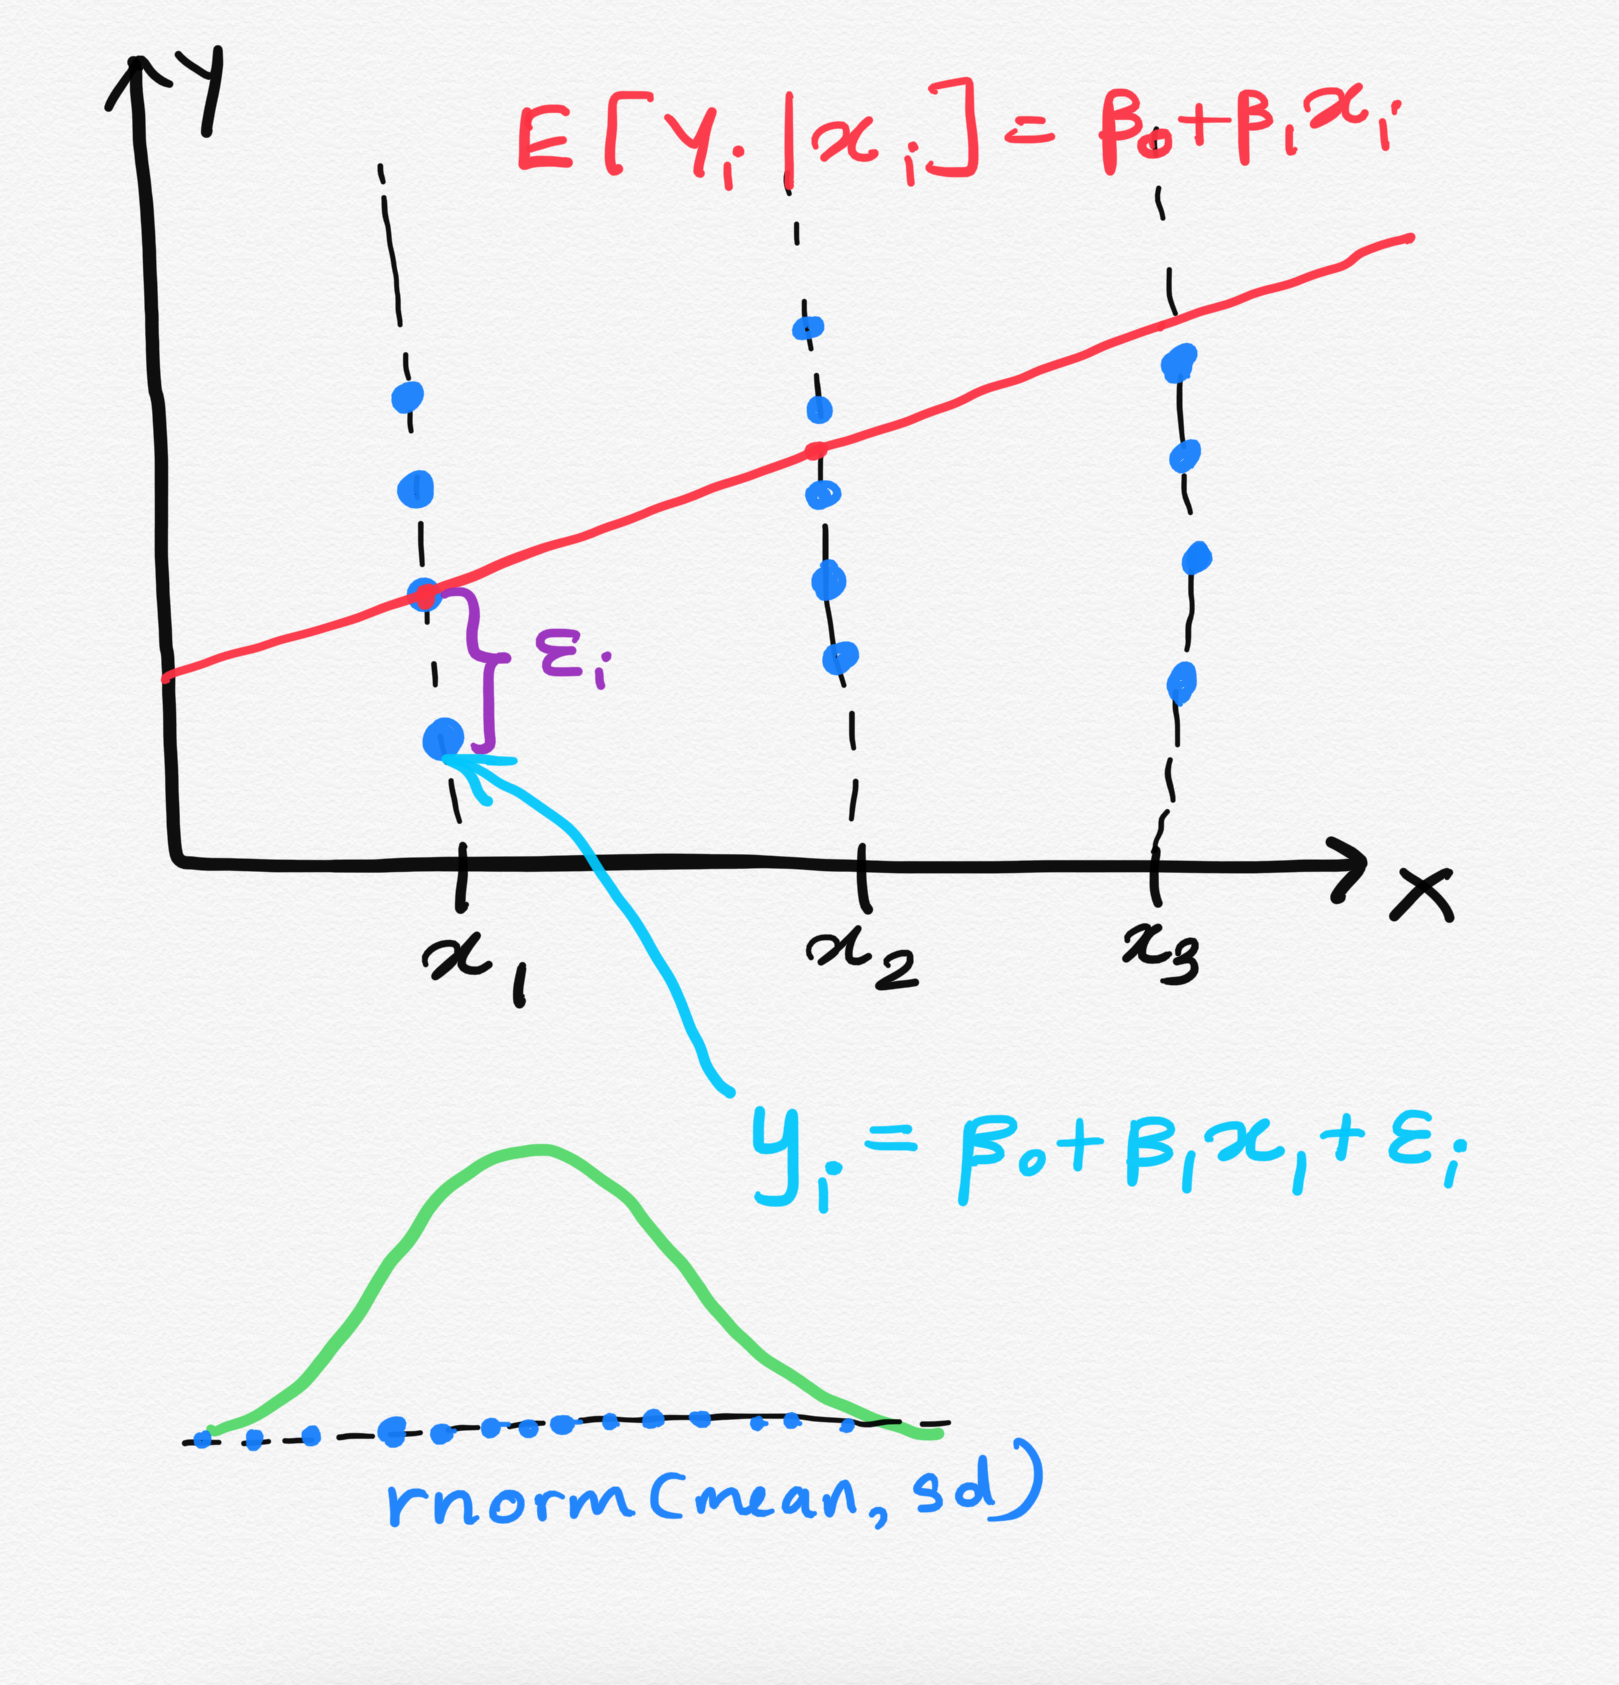 Y
E[Yᵢ|xᵢ] = β₀+β₁xᵢ
εᵢ
X
x₁ x₂ x₃
yᵢ = β₀+β₁x₁+εᵢ
rnorm(mean, sd)